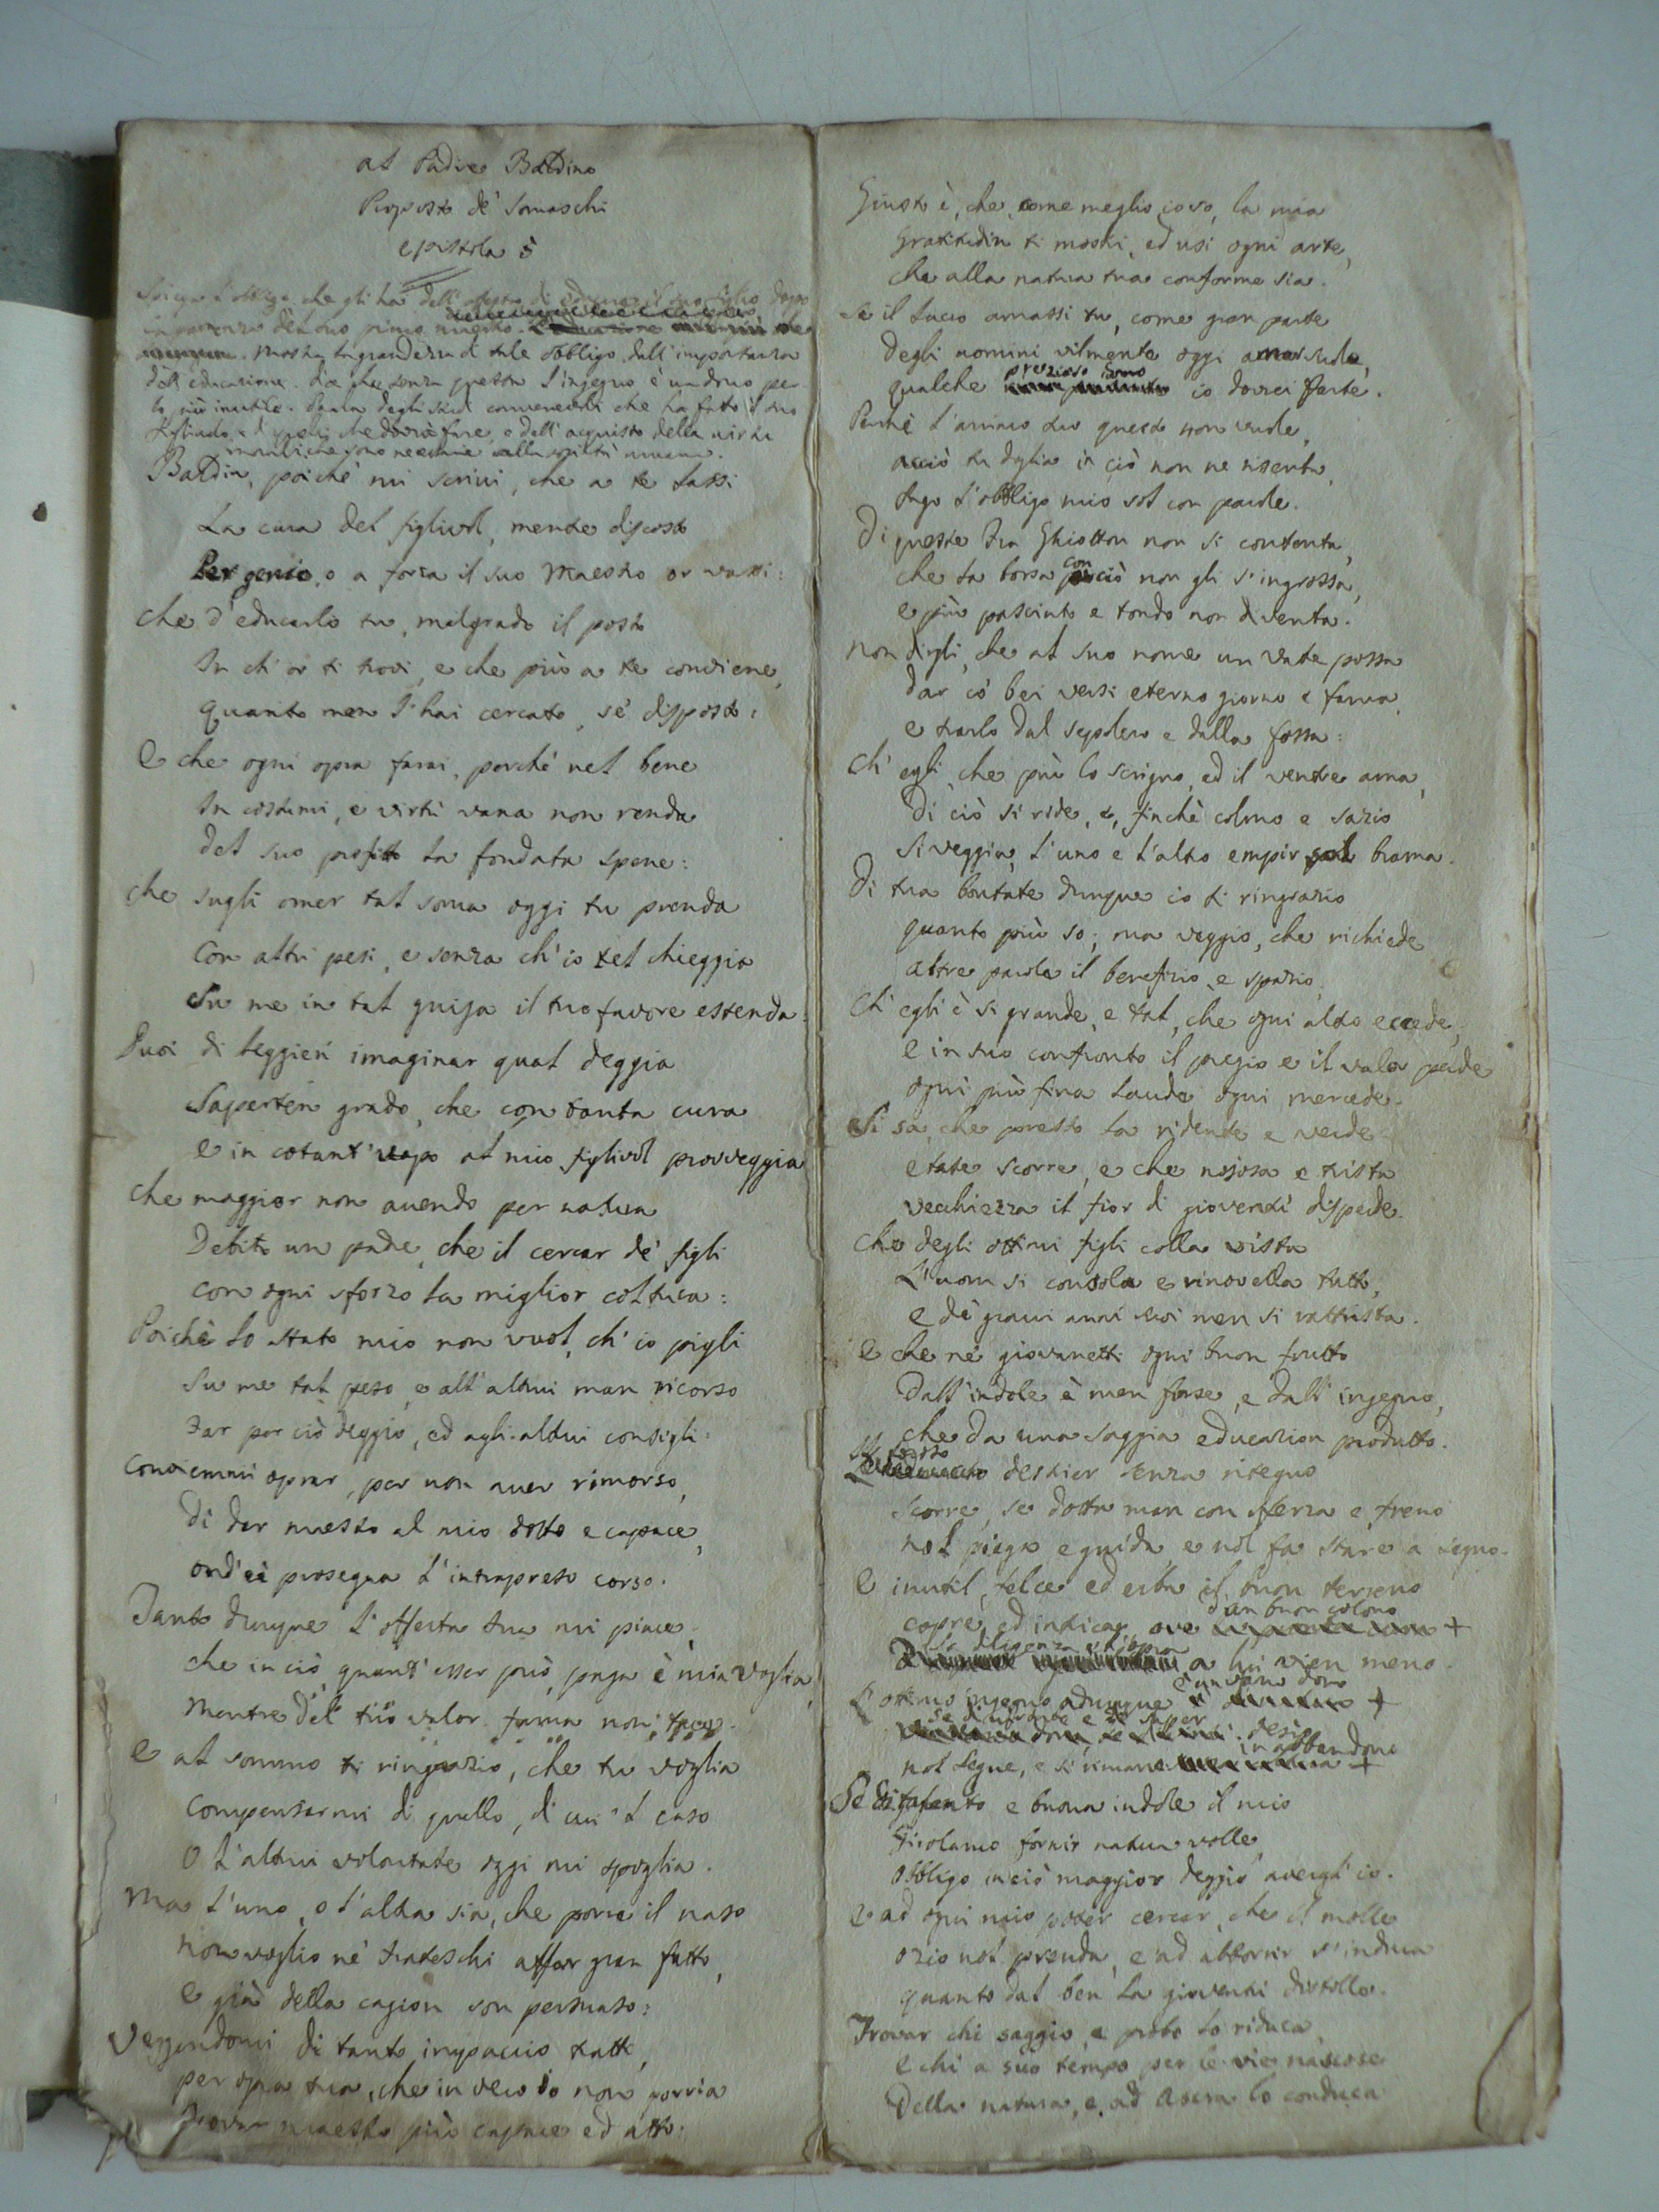 al Padre Baldino
Proposto de' Somaschi
epistola 5
Spiega l'obbligo che gli ha dell'offerta di educare il suo figlio, dopo
la partenza del suo primo maestro.
Mostra la grandezza di tale obbligo dall'importanza
dell'educazione. Dice che senza questa l'ingegno è un dono per
lo più inutile. Parla degli studi convenevoli che ha fatto il suo
figliuolo, e di quelli che dovrà fare, e dell'acquisto della virtù
morali, che sono necessarie alla società umana.
Baldin, poichè mi scrivi, che a te lassi
La cura del figliuol, mentre discosto
Per genio, o a forza il suo Maestro or vassi:
che d'educarlo tu, malgrado il posto
In ch'or ti trovi, e che più a te conviene,
quanto men l'hai cercato, se' disposto:
E che ogni opra farai, perchè nel bene
In costumi, e virtù vana non renda
del suo profitto la fondata spene:
che sugli omer tal soma oggi tu prenda
Con altri pesi, e senza ch'io tel chieggia
Su me in tal guisa il tuo favore estenda.
Puoi di leggieri imaginar qual deggia
Saperten grado, che con tanta cura
e in cotant'uopo al mio figliuol provveggia
che maggior non avendo per natura
Debito un padre, che il cercar de' figli
con ogni sforzo la miglior coltura:
Poichè lo stato mio non vuol, ch'io pigli
Su me tal peso, e all'altrui man ricorso
Far per ciò deggio, ed agli altrui consigli:
Conviemmi oprar, per non aver rimorso,
Di dar maestro al mio dotto e capace,
ond'ei prosegua l'intrapreso corso.
Tanto dunque l'offerta tua mi piace,
che in ciò, quant'esser può, paga è mia voglia,
Mentre del tuo valor fama non tace.
E al sommo ti ringrazio, che tu voglia
Compensarmi di quello, di cui 'l caso
O l'altrui volontate oggi mi spoglia.
Ma l'uno, o l'altra sia, che porre il naso
Non voglio ne' frateschi affar gran fatto,
e già della cagion son persuaso:
Veggendomi di tanto impaccio tratto,
per opra tua, che in vero io non potria
Trovar maestro più capace ed atto:
Giusto è, che, come meglio io so, la mia
Gratitudin ti mostri, ed usi ogni arte,
che alla natura tua conforme sia.
Se il lucro amassi tu, come gran parte
degli uomini vilmente oggi amar suole,
qualche prezioso dono io dovrei farte.
Perchè l'animo tuo questo non vuole,
acciò tu doglia in ciò non ne risenta,
Pago l'obbligo mio sol con parole.
Di queste un Ghiotton non si contenta,
che la borsa con ciò non gli s'ingrossa,
e più pasciuto e tondo non diventa.
Non digli, che al suo nome un Vate possa
dar co' bei versi eterno giorno e fama,
e trarlo dal sepolcro e dalla fossa:
Ch'egli, che più lo scrigno, ed il ventre ama,
Di ciò si ride, e, finchè colmo e sazio
Si veggia, l'uno e l'altro empir sol brama.
Di tua bontate dunque io ti ringrazio
quanto più so; ma veggio, che richiede
altre parole il benefizio, e spazio,
Ch'egli è sì grande, e tal, che ogni altro eccede,
E in suo confronto il pregio e il valor perde
ogni più fina laude, ogni mercede.
Si sa, che presto la ridente e verde
etate scorre, e che nojosa e trista
vecchiezza il fior di gioventù disperde.
Che degli ottimi figli colla vista
L'uom si consola e rinovella tutto,
e de' gravi anni suoi men si rattrista.
E che ne' giovanetti ogni buon frutto
Dall'indole è men forse, e dall'ingegno,
che da una saggia educazion produtto.
destrier senza ritegno
Scorre, se dotta man con sferza e freno
nol piega e guida, e nol fa stare a segno.
E inutil felce ed erba il buon terreno
copre, ed intrica, ove d'un buon colono +
la diligenza e l'opra a lui vien meno.
L'ottimo ingegno adunque è un vano dono +
se di virtute e di saper desio
nol segue, e si rimane in abbandono +
Se di talento e buona indole il mio
Girolamo fornir natura volle,
obbligo in ciò maggior deggio avergl'io.
E ad ogni mio poter cercar, che il molle
ozio nol prenda, e ad abborrir s'induca
quanto dal ben la gioventù distolle.
Trovar chi saggio, e probo lo riduca,
e chi a suo tempo per le vie nascose
Della natura, e ad Ascra lo conduca